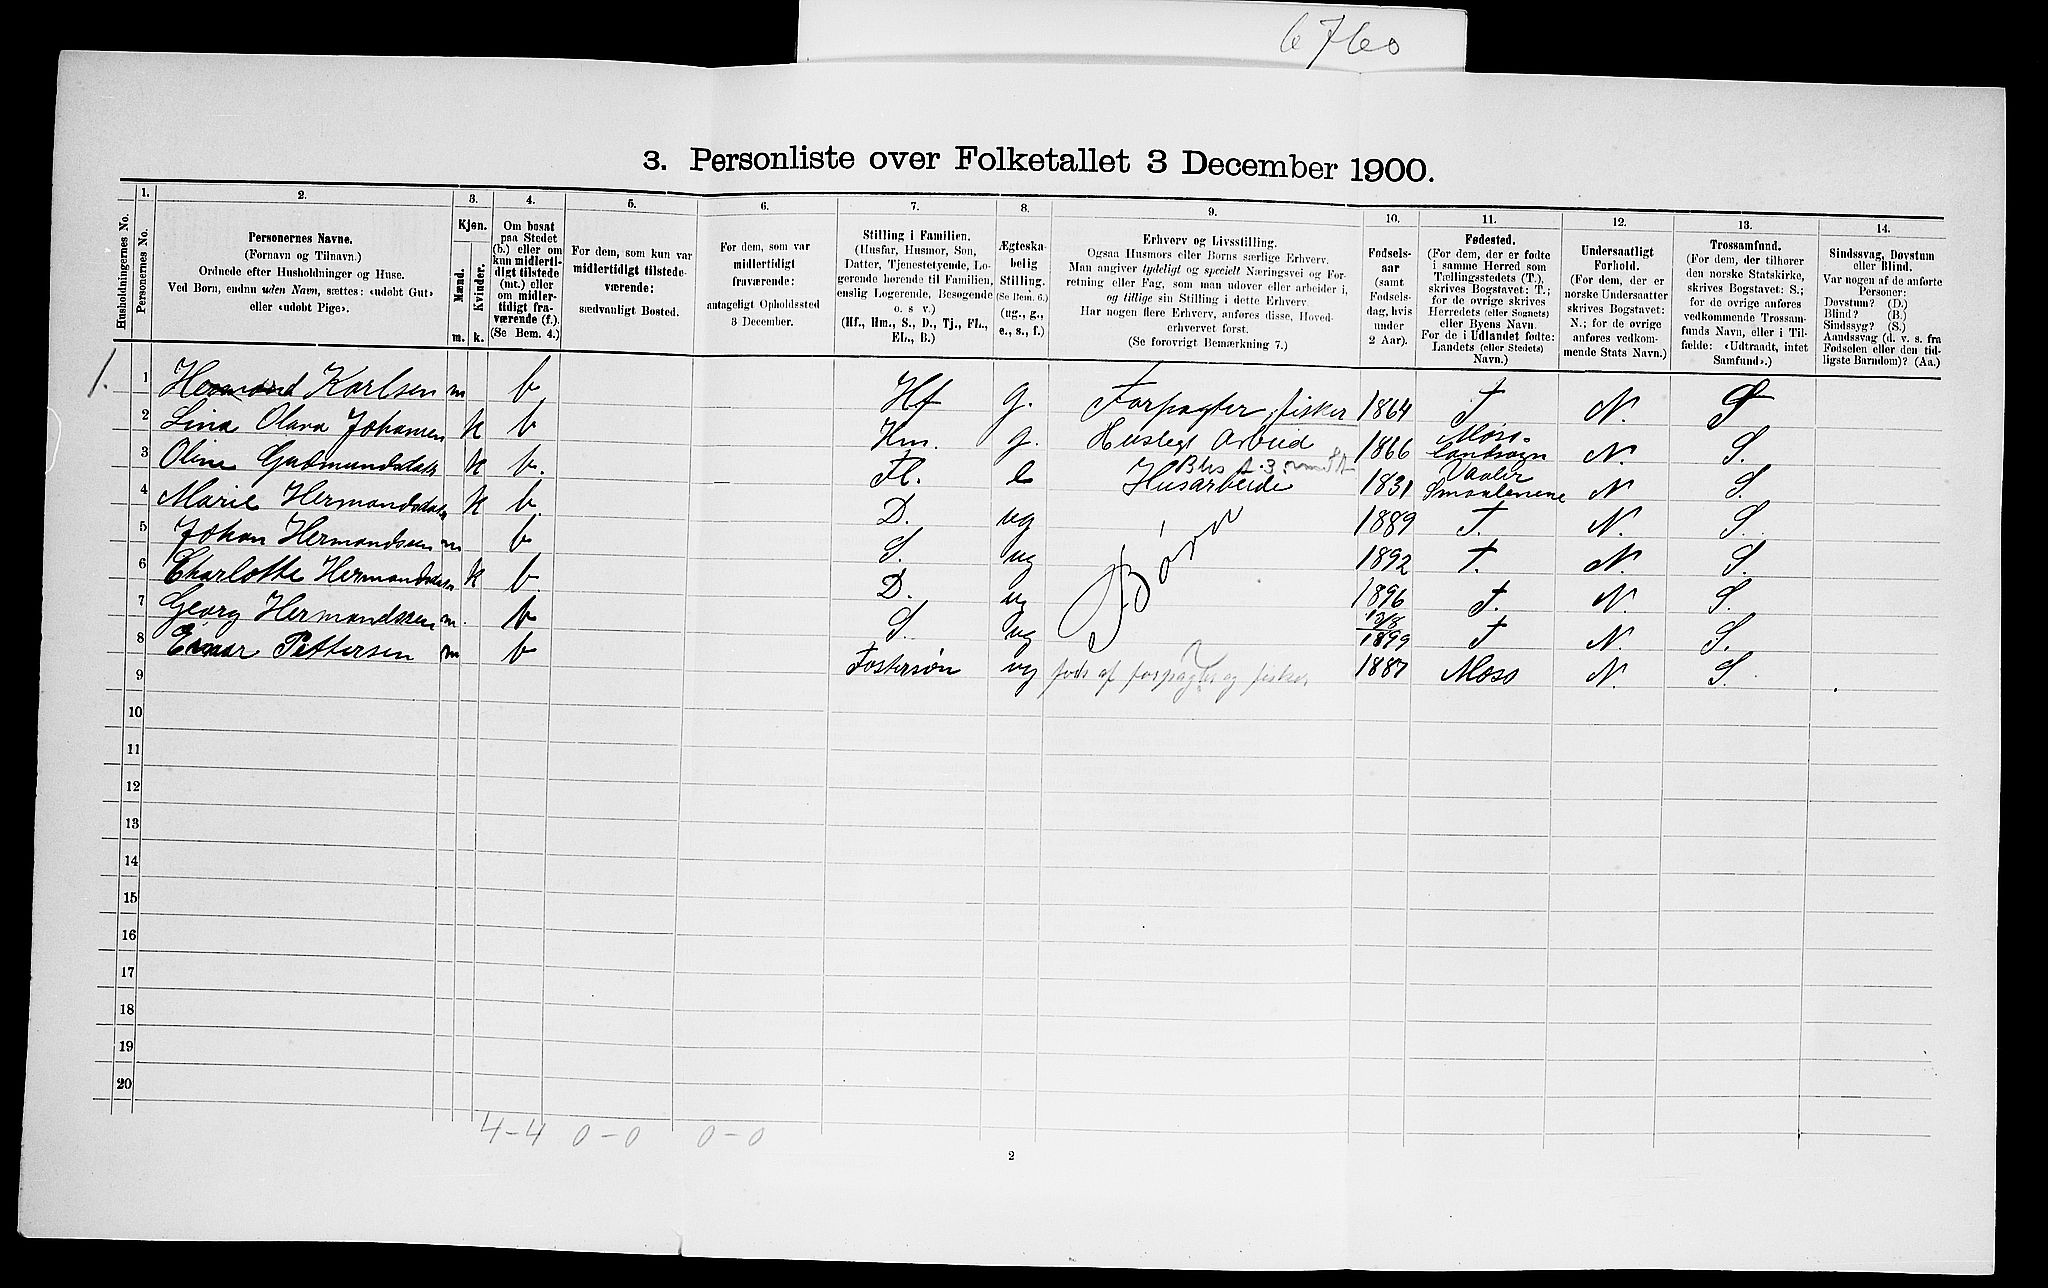 6760
3. Personliste over Folketallet 3 December 1900.
Husholdningernes No.
1. Personernes No.
2. Personernes Navne.
(Fornavn og Tilnavn.)
Ordnede efter Husholdninger og Huse.
Ved Børn, endnu uden Navn, sættes: «udøbt Gut»
eller «udøbt Pige».
3. Kjøn.
Mænd. Kvinder.
m. k.
4. Om bosat
paa Stedet
(b.) eller om
kun midlerti-
digt tilstede
(mt.) eller
om midler-
tidigt fra-
værende (f.).
(Se Bem. 4.)
5. For dem, som kun var
midlertidigt tilstede-
værende:
sædvanligt Bosted.
6. For dem, som var
midlertidigt
fraværende:
antageligt Opholdssted
3 December.
7. Stilling i Familien.
(Husfar, Husmor, Søn,
Datter, Tjenestetyende, Lo-
gerende hørende til Familien,
enslig Logerende, Besøgende
o. s v.)
(Hf., Hm., S., D., Tj., Fl.,
EL., B.)
8. Ægteska-
belig
Stilling.
(Se Bem. 6.)
(ug., g.,
e., s., f.)
9. Erhverv og Livsstilling.
Ogsaa Husmors eller Børns særlige Erhverv.
Man angiver tydeligt og specielt Næringsvei og For-
retning eller Fag, som man udover eller arbeider i,
og tillige sin Stilling i dette Erhverv.
Har nogen flere Erhverv, anføres disse, Hoved-
erhvervet først.
(Se forøvrigt Bemærkning 7.)
10. Fødsels-
aar
(samt
Fødsels-
dag, hvis
under
2 Aar).
11. Fødested.
(For dem, der er fødte
i samme Herred som
Tællingsstedets (T.),
skrives Bogstavet: T.;
for de øvrige skrives
Herredets (eller Sognets)
eller Byens Navn.
For de i Udlandet fødte:
Landets (eller Stedets)
Navn.)
12. Undersaatligt
Forhold.
(For dem, der er
norske Undersaatter
skrives Bogstavet:
N.; for de øvrige
anføres vedkom-
mende Stats Navn.)
13. Trossamfund.
(For dem, der tilhører
den norske Statskirke,
skrives Bogstavet: S.;
for de øvrige anføres
vedkommende Trossam-
funds Navn, eller i Til-
fælde: «Udtraadt, intet
Samfund».)
14. Sindssvag, Døvstum
eller Blind.
Var nogen af de anførte
Personer:
Døvstum? (D.)
Blind? (B.)
Sindssyg? (S.)
Aandssvag (d. v. s. fra
Fødselen eller den tid-
ligste Barndom)? (Aa.)
1. 1 Hermand Karlsen m b Hf g. Forpagter, fisker 1864 T N. S
2 Lina Olava Johansen k b Hm. g. Husligt Arbeid 1866 Moss landsogn N. S.
3 Oline Gudmundsdatr k b. Fl. e Husarbeide 1831 Vaaler Smaalenene N S.
4 Marie Hermandsdatr k b. D. ug Børn 1889 T. N. S.
5 Johan Hermandssen m b S. ug 1892 T. N. S.
6 Charlotte Hermandsdatr k b. D. ug 1896 T. N. S.
7 Georg Hermandssen m. b S. ug 13/8 1899 T N. S.
8 Einar Pettersen m b Fostersøn ug fors af forpagter og fisker 1887 Moss N. S.
9
10
11
12
13
14
15
16
17
18
19
20
4-4 0-0 0-0
2